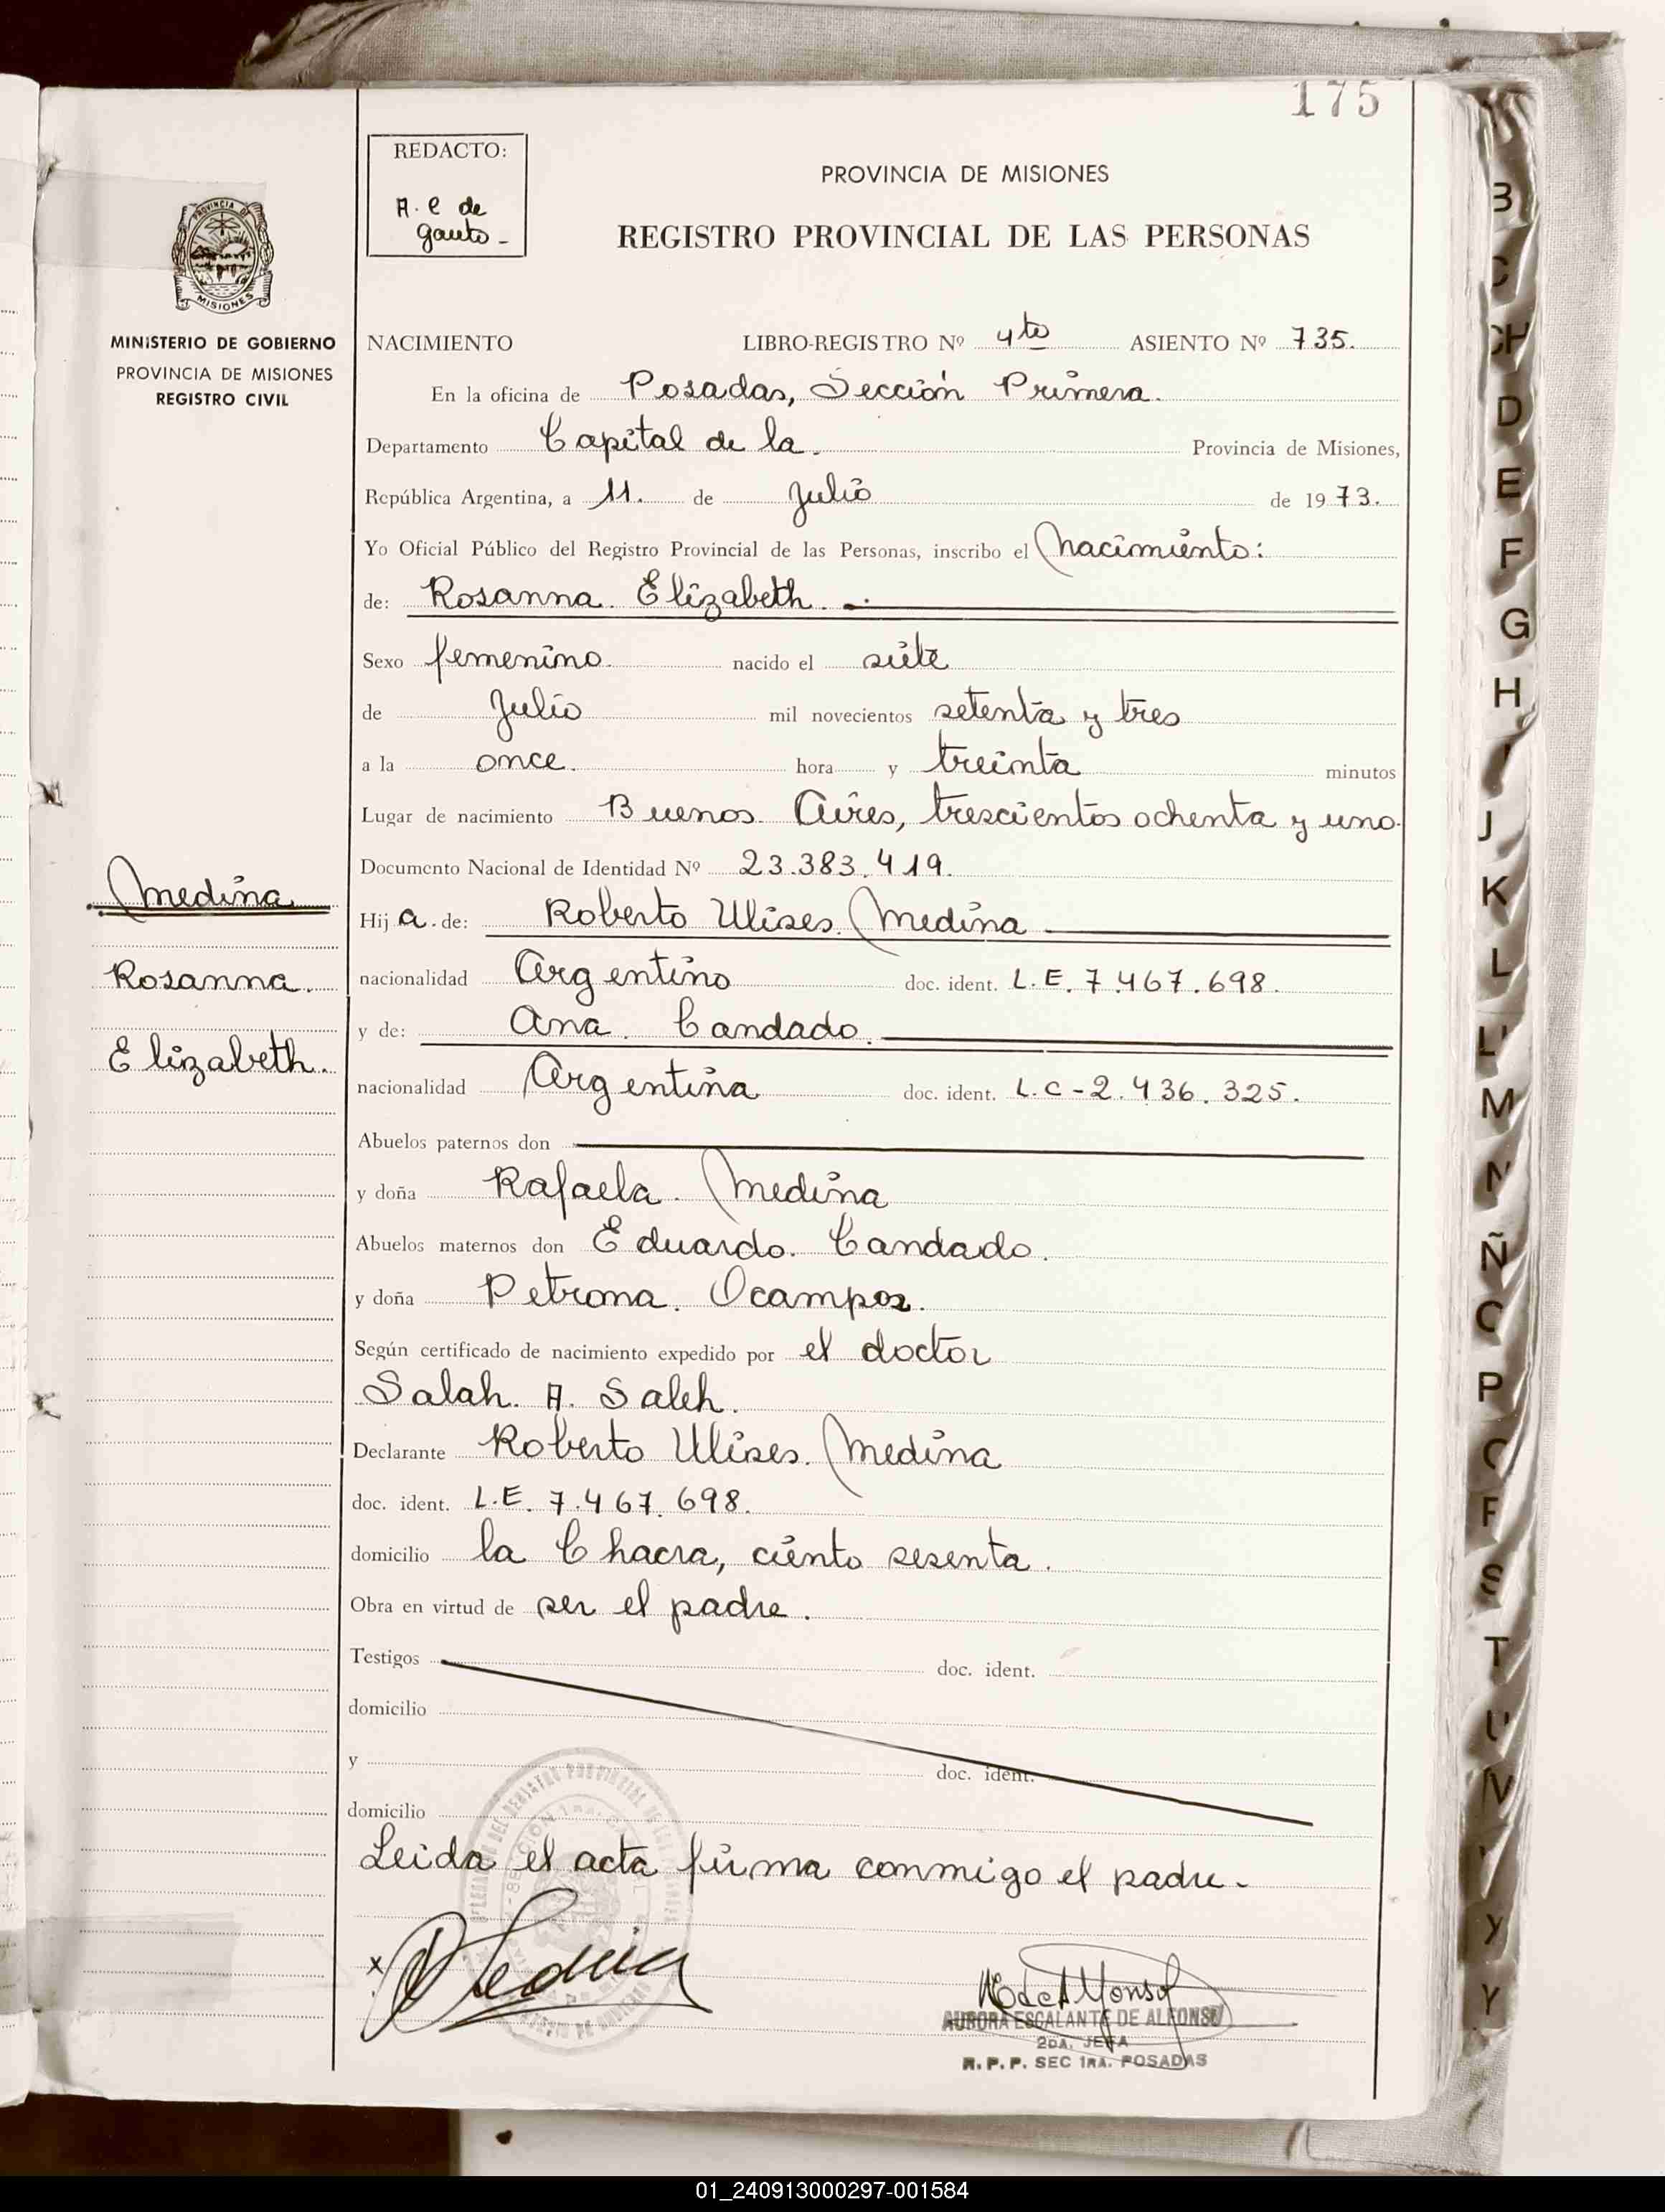 175
REDACTO:
A. C de
Gauto -
PROVINCIA DE MISIONES
REGISTRO PROVINCIAL DE LAS PERSONAS
PROVINCIA DE
MISIONES
MINISTERIO DE GOBIERNO
PROVINCIA DE MISIONES
REGISTRO CIVIL
NACIMIENTO LIBRO-REGISTRO Nº 4to ASIENTO Nº 735.
En la oficina de Posadas, Sección Primera.
Departamento Capital de la Provincia de Misiones,
República Argentina, a 11. de Julio de 1973.
Yo Oficial Público del Registro Provincial de las Personas, inscribo el Nacimiento:
de: Rosanna Elizabeth.
Sexo femenino. nacido el siete
de Julio mil novecientos setenta y tres
a la once. hora y treinta minutos
Lugar de nacimiento Buenos Aires, trescientos ochenta y uno.
Documento Nacional de Identidad Nº 23.383.419.
Medina
Rosanna.
Elizabeth.
Hija. de: Roberto Ulises Medina
nacionalidad Argentino doc. ident. L.E. 7.467.698.
y de: Ana Candado.
nacionalidad Argentina doc. ident. L.C-2.436.325.
Abuelos paternos don
y doña Rafaela Medina
Abuelos maternos don Eduardo Candado.
y doña Petrona Ocampos.
Según certificado de nacimiento expedido por el doctor
Salah A. Saleh.
Declarante Roberto Ulises Medina
doc. ident. L.E. 7.467.698.
domicilio la Chacra, ciento sesenta.
Obra en virtud de ser el padre.
Testigos doc. ident.
domicilio
y doc. ident.
domicilio
Leida el acta firma conmigo el padre.
x Medina
AURORA ESCALANTE DE ALFONSO
2DA. JEFA
R. P. P. SEC 1RA. POSADAS
B
C
CH
D
E
F
G
H
I
J
K
L
LL
M
N
Ñ
O
P
Q
R
S
T
U
V
Y
01_240913000297-001584